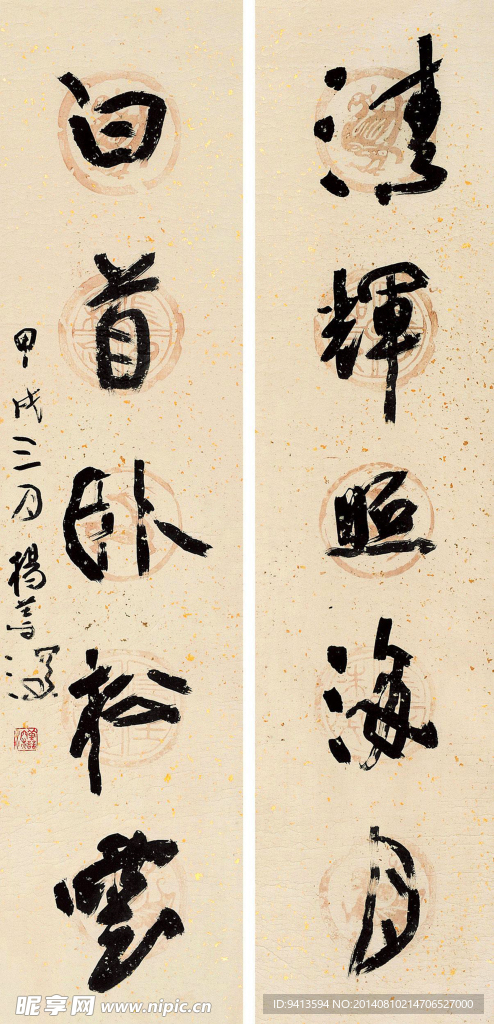 清輝照海月
白首卧松雲
甲戌三月楊善深
昵享网 www.nipic.cn
ID:9413594 NO:20140810214706527000